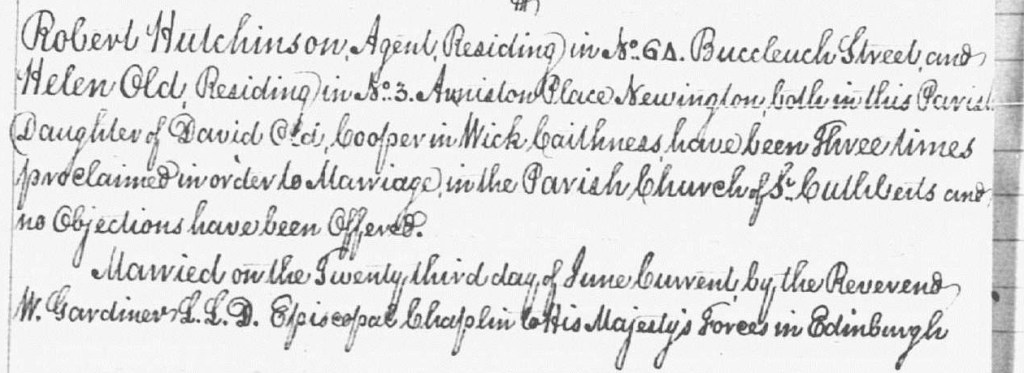 Robert Hutchinson, Agent, Residing in No. 64. Buccleuch Street, and
Helen Old, Residing in No. 3. Arniston Place Newington, both in this Parish
Daughter of David Old, Cooper in Wick Caithness, have been Three times
proclaimed in order to Marriage, in the Parish Church of St. Cuthberts and
no Objections have been Offered.
Married on the Twenty third day of June Current, by the Reverend
W. Gardiner L.L.D. Episcopal Chaplin to His Majesty's Forces in Edinburgh